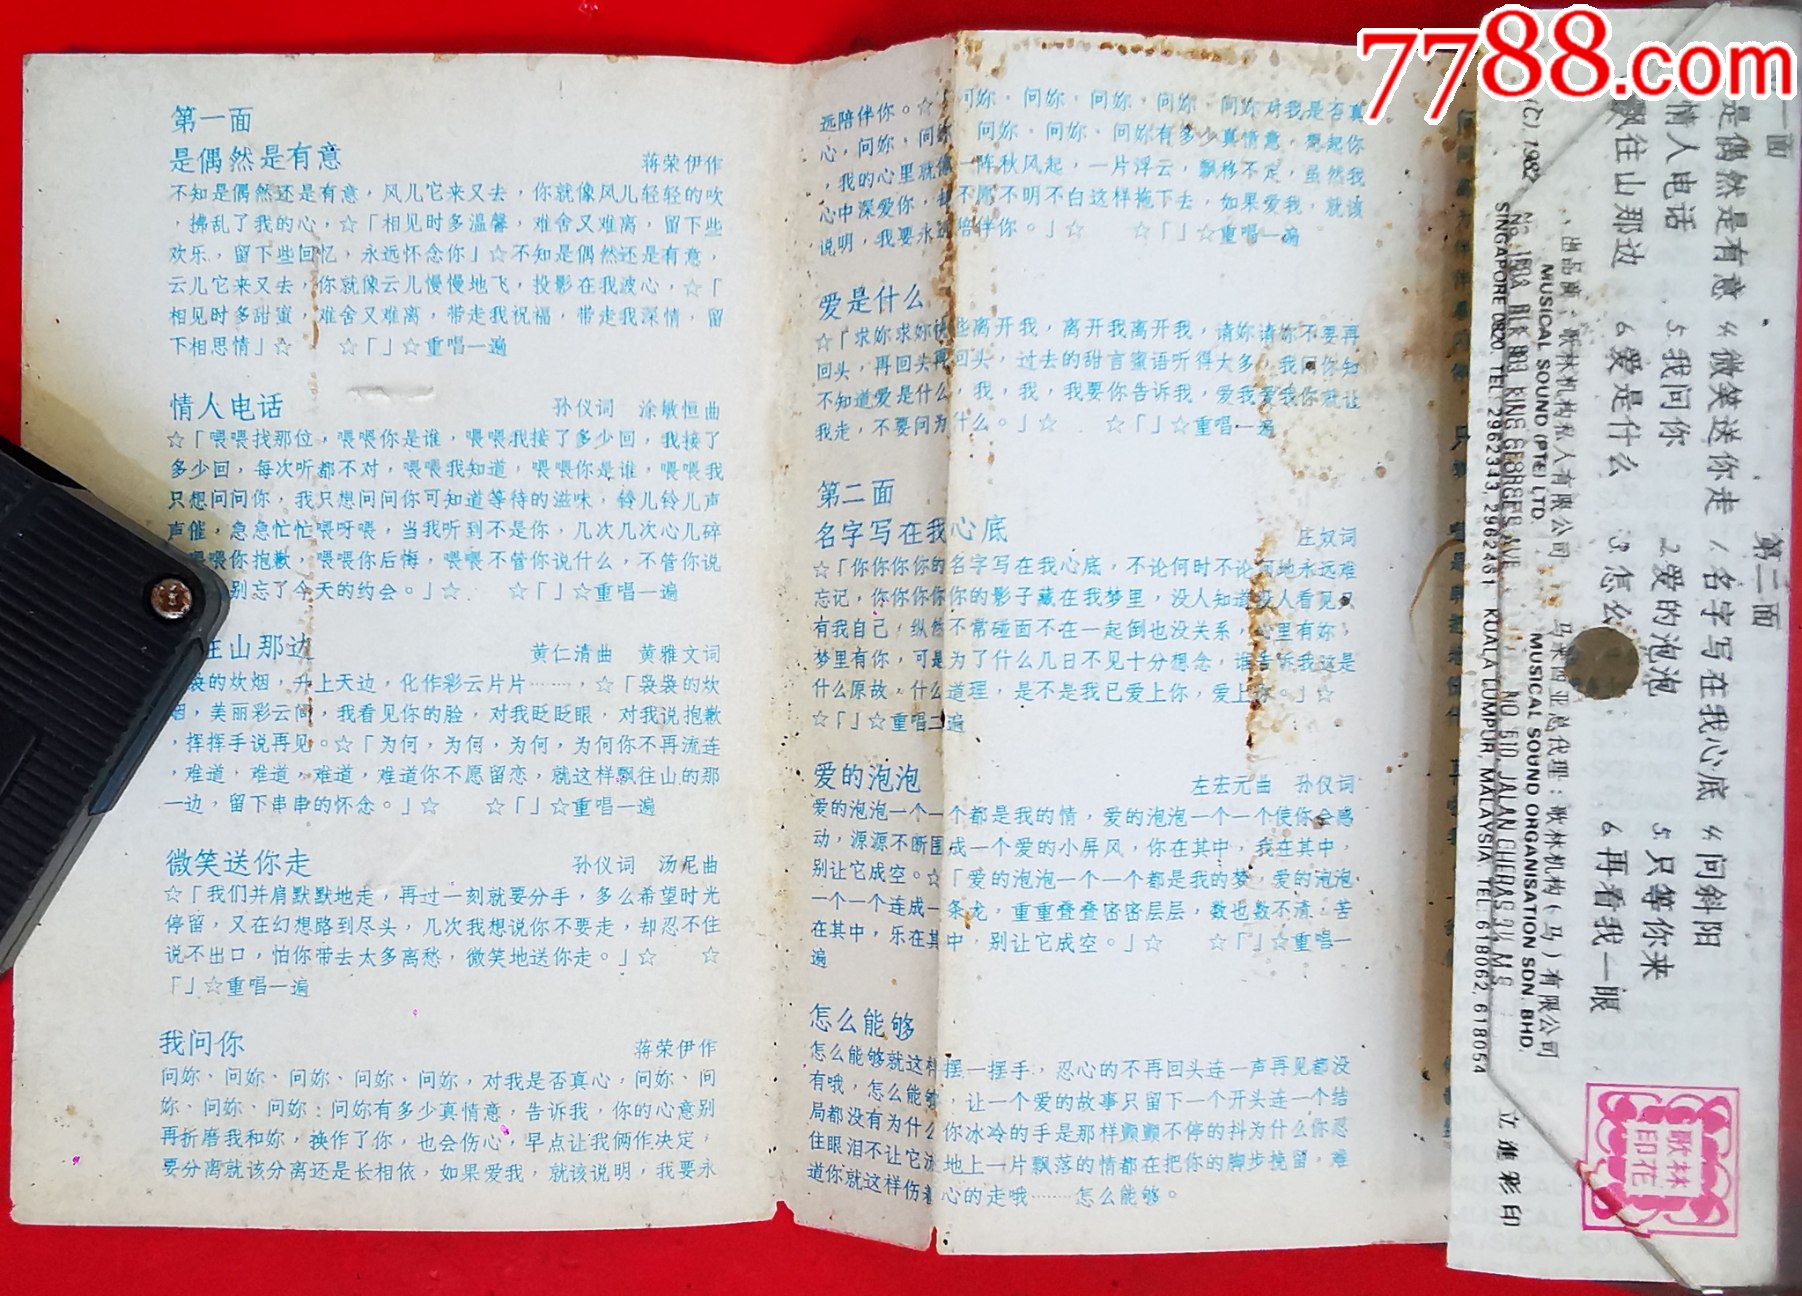 第一面
是偶然是有意 蒋荣伊作
不知是偶然还是有意，风儿它来又去，你就像风儿轻轻的吹
，拂乱了我的心，☆「相见时多温馨，难舍又难离，留下些
欢乐，留下些回忆，永远怀念你」☆不知是偶然还是有意，
云儿它来又去，你就像云儿慢慢地飞，投影在我波心，☆「
相见时多甜蜜，难舍又难离，带走我祝福，带走我深情，留
下相思情」☆ ☆「」☆重唱一遍
情人电话 孙仪词 涂敏恒曲
☆「喂喂找那位，喂喂你是谁，喂喂我接了多少回，我接了
多少回，每次听都不对，喂喂我知道，喂喂你是谁，喂喂我
只想问问你，我只想问问你可知道等待的滋味，铃儿铃儿声
声催，急急忙忙喂呀喂，当我听到不是你，几次几次心儿碎
喂你抱歉，喂喂你后悔，喂喂不管你说什么，不管你说
别忘了今天的约会。」☆ ☆「」☆重唱一遍
往山那边 黄仁清曲 黄雅文词
袅的炊烟，升上天边，化作彩云片片………，☆「袅袅的炊
烟，美丽彩云间，我看见你的脸，对我眨眨眼，对我说抱歉
，挥挥手说再见。☆「为何，为何，为何，为何你不再流连
，难道，难道，难道，难道你不愿留恋，就这样飘往山的那
一边，留下串串的怀念。」☆ ☆「」☆重唱一遍
微笑送你走 孙仪词 汤尼曲
☆「我们并肩默默地走，再过一刻就要分手，多么希望时光
停留，又在幻想路到尽头，几次我想说你不要走，却忍不住
说不出口，怕你带去太多离愁，微笑地送你走。」☆ ☆
「」☆重唱一遍
我问你 蒋荣伊作
问妳、问妳、问妳、问妳、问妳，对我是否真心，问妳、问
妳、问妳、问妳：问妳有多少真情意，告诉我，你的心意别
再折磨我和妳，换作了你，也会伤心，早点让我俩作决定，
要分离就该分离还是长相依，如果爱我，就该说明，我要永
远陪伴你。☆「问妳，问妳，问妳，问妳，问妳对我是否真
心，问妳，问妳，问妳，问妳，问妳有多少真情意，想起你
，我的心里就像一阵秋风起，一片浮云，飘移不定，虽然我
心中深爱你，我不愿不明不白这样拖下去，如果爱我，就该
说明，我要永远陪伴你。」☆ ☆「」☆重唱一遍
爱是什么
☆「求妳求妳快些离开我，离开我离开我，请妳请妳不要再
回头，再回头再回头，过去的甜言蜜语听得太多，我问你知
不知道爱是什么，我，我，我要你告诉我，爱我爱我你就让
我走，不要问为什么。」☆ ☆「」☆重唱一遍
第二面
名字写在我心底 庄奴词
☆「你你你你的名字写在我心底，不论何时不论何地永远难
忘记，你你你你你的影子藏在我梦里，没人知道没人看见只
有我自己，纵然不常碰面不在一起倒也没关系，心里有妳，
梦里有你，可是为了什么几日不见十分想念，谁告诉我这是
什么原故，什么道理，是不是我已爱上你，爱上你。」☆
☆「」☆重唱二遍
爱的泡泡 左宏元曲 孙仪词
爱的泡泡一个一个都是我的情，爱的泡泡一个一个使你会感
动，源源不断围成一个爱的小屏风，你在其中，我在其中，
别让它成空。☆「爱的泡泡一个一个都是我的梦，爱的泡泡
一个一个连成一条龙，重重叠叠密密层层，数也数不清，苦
在其中，乐在其中，别让它成空。」☆ ☆「」☆重唱一
遍
怎么能够
怎么能够就这样摆一摆手，忍心的不再回头连一声再见都没
有哦，怎么能够，让一个爱的故事只留下一个开头连一个结
局都没有为什么你冰冷的手是那样颤颤不停的抖为什么你忍
住眼泪不让它流地上一片飘落的情都在把你的脚步挽留，难
道你就这样伤着心的走哦………怎么能够。
7788.com
一面
是偶然是有意 4 微笑送你走
情人电话 5.我问你
飘往山那边 6 爱是什么
第二面
1.名字写在我心底 4 问斜阳
2.爱的泡泡 5 只等你来
3.怎么 6 再看我一眼
(C) 1982
出品商：歌林机构私人有限公司
MUSICAL SOUND (PTE) LTD.
No. 180A, BLK 803, KING GEORGE'S AVE.,
SINGAPORE 0820. TEL: 2962333, 2962431
马来西亚总代理：歌林机构(马)有限公司
MUSICAL SOUND ORGANISATION SDN. BHD.
NO. 51D, JALAN CHERAS
KUALA LUMPUR, MALAYSIA. TEL: 618062, 618054
立进彩印
歌林
印花